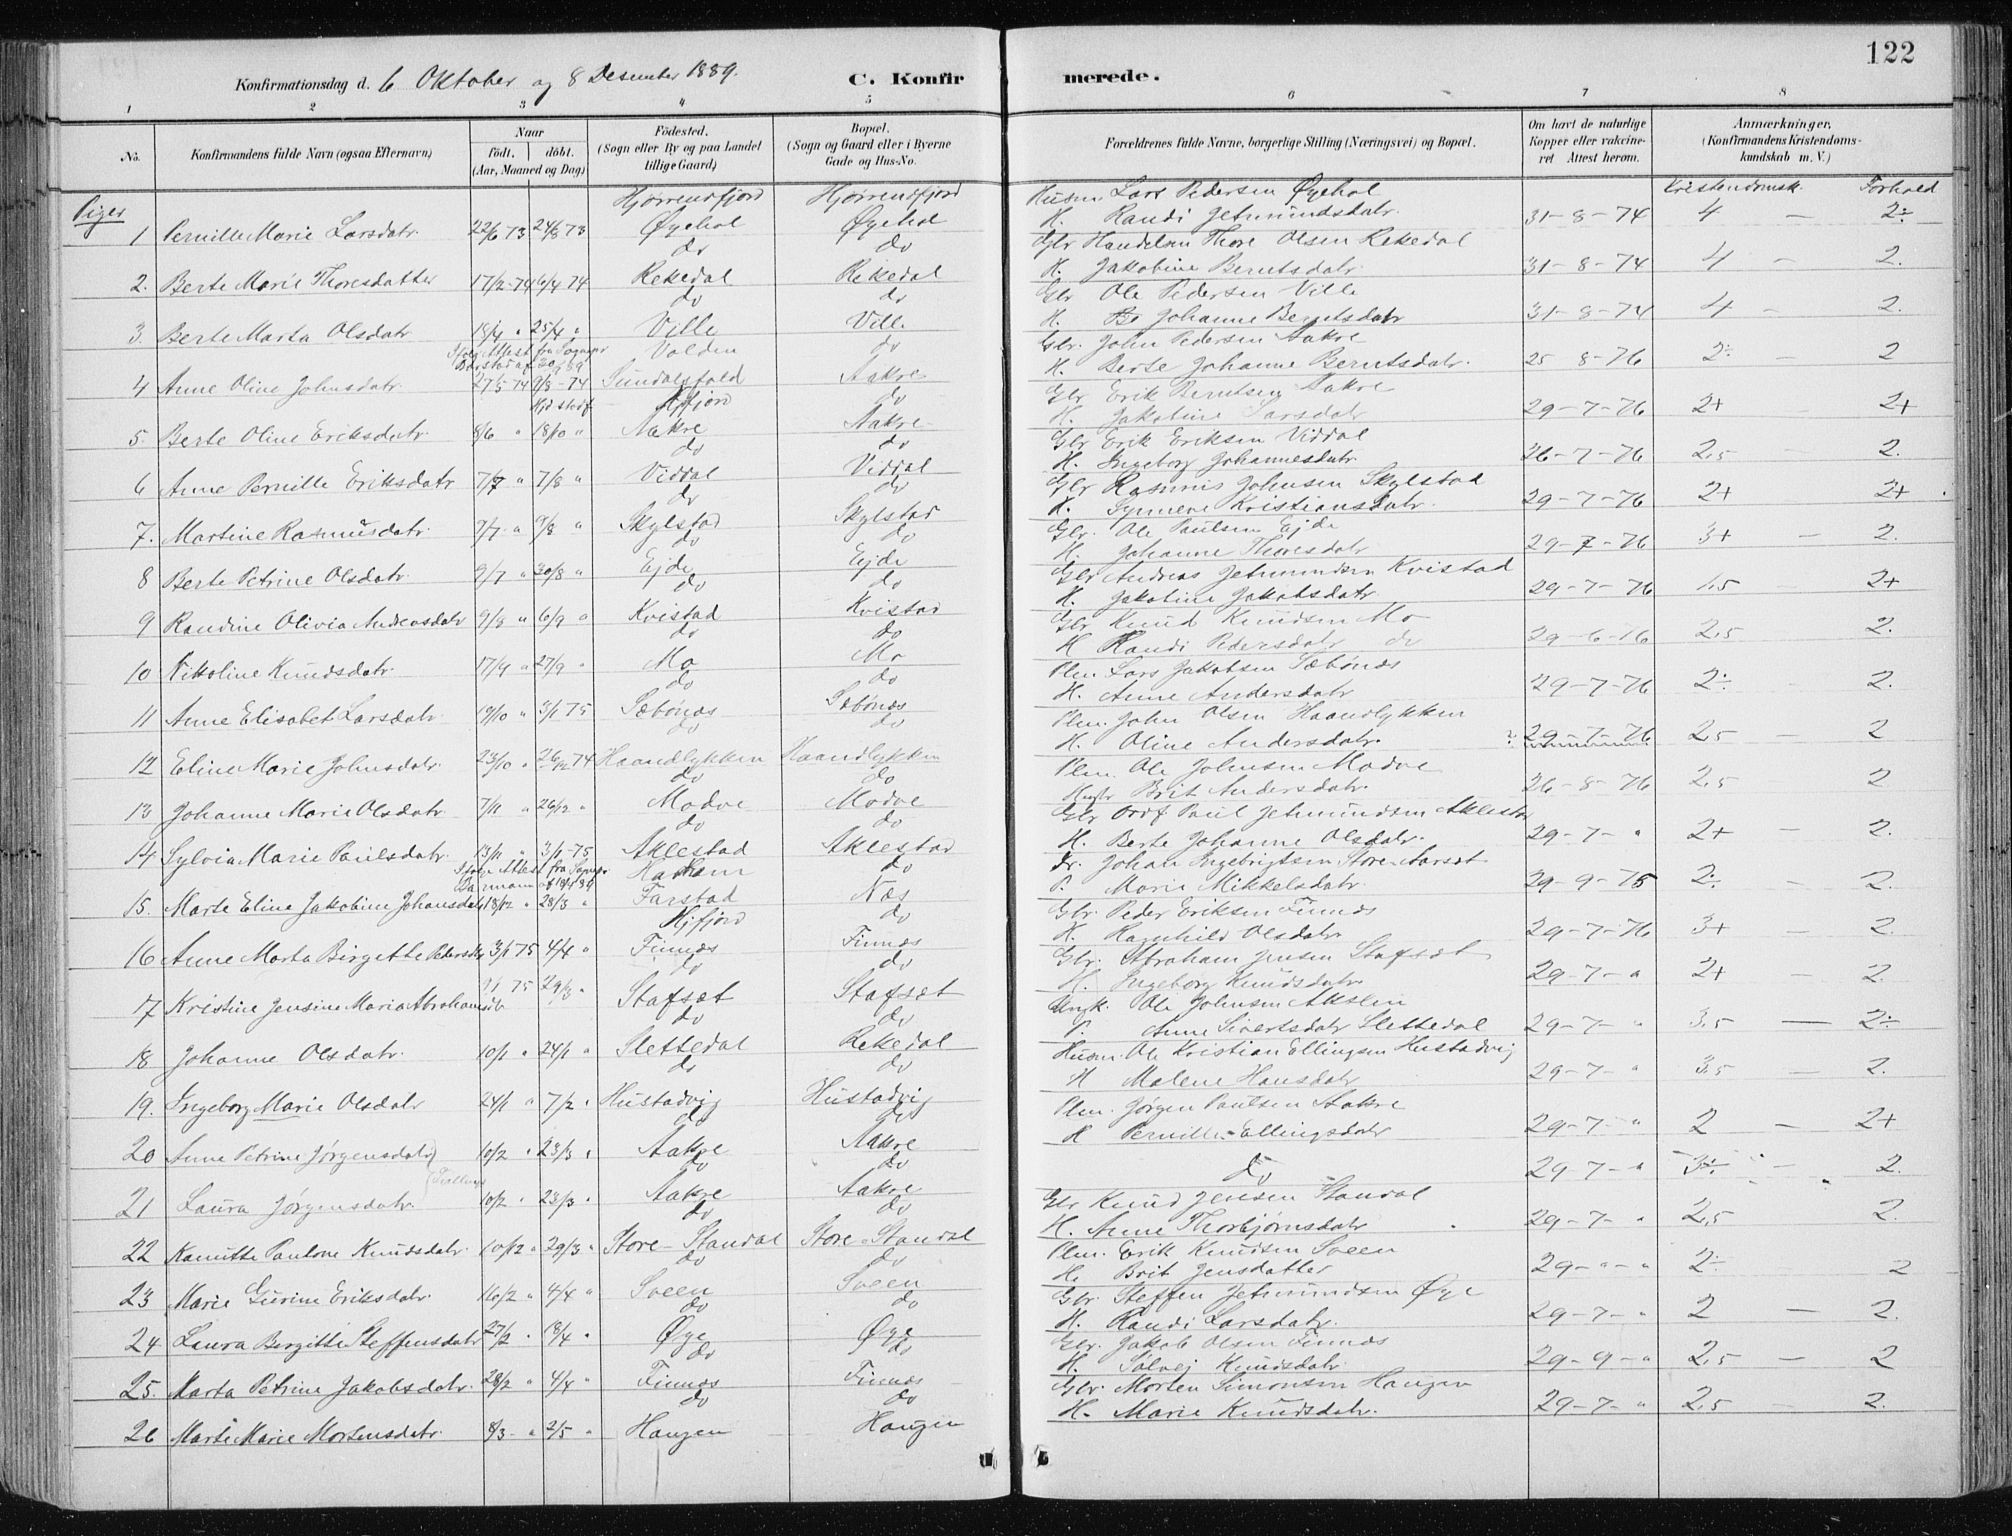 122
Konfirmationsdag d. 6 Oktober og 8 Desember 1889.
C. Konfirmerede.
1 2 3 4 5 6 7 8
No. Konfirmandens fulde Navn (ogsaa Efternavn) Naar födt. döbt. (Aar, Maaned og Dag) Födested. (Sogn eller By og paa Landet tillige Gaard) Bopæl. (Sogn og Gaard eller i Byerne Gade og Hus-No. Forældrenes fulde Navne, borgerlige Stilling (Næringsvei) og Bopæl. Om havt de naturlige Kopper eller vakcineret Attest herom. Anmærkninger, (Konfirmandens Kristendomskundskab m. V.)
Piger Hjørrendfjord Hjørrendfjord Husm. Lars Pedersen Øyehol Kristendomsk. Forhold
1 Pernille Marie Larsdatr. 22/6 73 24/8 73 Øyehol Øyehol H. Randi Jetmundsdatr. 31-8-74 4 – 2÷
do do Gbr Handelsm Thore Olsen Rekedal
2. Berte Marie Thoresdatter 17/2-74 6/4 74 Rekedal Rekedal H. Jakobine Berntsdatr. 31-8-74 4 – 2.
do do Gbr Ole Pedersen Ville
3. Berte Marta Olsdatr 18/4 " 25/4 " Ville Ville H. Johanne Berntsdatr 31-8-74 4 – 2.
Volden do Gbr. John Pedersen Aakre
4 Anne Oline Johnsdatr. 27/5 74 9/8-74 Aakre H. Berte Johanne Berntsdatr. 25 8-76 2÷ – 2
Hjfjord do Gbr Erik Berntsen Aakre
5. Berte Oline Eriksdatr. 8/6 " 18/10 " Aakre Aakre H. Jakobine Larsdatr 29-7-76 2+ – 2+
do do Gbr Erik Eriksen Viddal
6 Anne Pernille Eriksdatr 7/7 " 7/8 " Viddal Viddal H. Ingeborg Johannesdatr. 26-7-76 2,5 – 2.
do do Gbr Rasmus Johnsen Skylstad
7. Martine Rasmusdatr. 7/7 " 9/8 " Skylstad Skylstad H. Synneve Kristiansdatr. 29-7-76 2+ – 2+
do do Gbr. Ole Paulsen Ejde
8 Berte Petrine Olsdatr. 9/7 " 30/8 " Ejde Ejde H. Johanne Thoresdatr 29-7-76 3+ – 2.
do do Gbr Andreas Jetmundsen Kvistad
9 Randine Olivia Andreasdatr 9/8 " 6/9 " Kvistad Kvistad H. Jakobine Jakobsdatr. 29-7-76 1,5 – 2+
do do Gbr Knud Knudsen Mo
10 Nikoline Knudsdatr. 17/9 " 27/9 " Mo Mo H Randi Pedersdatr do 29-6-76 2,5 – 2.
do do Plm. Lars Jakobsen Sæbønæs
11 Anne Elisabet Larsdatr. 19/10 " 3/1 75 Sæbønæs Sæbønæs H. Anne Andersdatr 29-7-76 2÷ – 2.
do do Plm. John Olsen Haandlykken
12 Eline Marie Johnsdatr. 23/10 " 26/12 74 Haandlykken Haandlykken H. Oline Andersdatr. 29-7-76 2,5 – 2
do do Plm. Ole Johnsen Modve
13 Johanne Marie Olsdatr 7/11 " 26/12 " Modve Modve Brit Andersdatr. 26-8-76 2,5 2
do do Gbr Ordf Paul Jetmundsen Aklestad
14 Sylvia Marie Paulsdatr. 13/11 " 3/1-75 Aklestad Aklestad H. Berte Johanne Olsdatr. 29-7- " 2+ – 2.
do Johan Ingebrigtsen Store-Aarset
15. Marte Eline Jakobine Johansdatr 18/12 " 28/3 " Farstad Næs Marie Mikkelsdatr. 29-9-75 2÷ – 2.
Hjfjord do Gbr. Peder Eriksen Finnæs
16 Anne Marta Birgitte Pedersdtr 3/1 75 4/4 " Finnæs Finnæs H. Ragnhild Olsdatr 29-7-76 3+ – 2.
do do Gbr. Abraham Jensen Stafsæt
17 Kristine Jensine Maria Abrahamsdtr 75 29/3 " Stafsæt Stafsæt H. Ingeborg Knudsdatr 29-7- " 2+ – 2.
do do Ungk. Ole Johnsen Akslen
18. Johanne Olsdatr. 10/1 " 24/1 " Slettedal Rekedal P. Anne Sivertsdatr Slettedal 29-7- " 3,5 – 2÷
do do Husm. Ole Kristian Ellingsen Hustadvig
19. Ingeborg Marie Olsdatr 24/1 " 7/2 " Hustadvig Hustadvig H Malene Hansdatr 29-7- " 3,5 – 2.
do do Plm. Jørgen Paulsen Aakre
20 Anne Petrine Jørgensdatr 10/2 " 23/3 " Aakre Aakre H Pernille Ellingsdatr 29-7- " 2 – 2+
do do
21 Laura Jørgensdatr. 10/2 " 23/3 " Aakre Aakre do 29-7- " 3÷ – 2.
do do Gbr Knud Jensen Standal
22 Kanutte Paulone Knudsdatr. 10/12 " 29/3 " Store-Standal Store-Standal H. Anne Thorbjørnsdatr 29-7- " 2,5 2.
do do Plm. Erik Knudsen Sveen
23 Marie Gurine Eriksdatr. 16/2 " 4/4 " Sveen Sveen H. Brit Jensdatter 29- " - " 2÷ – 2
do do Gbr. Steffen Jetmundsen Øye
24 Laura Bergitte Steffensdatr 27/2 " 18/4 " Øye Øye H. Randi Larsdatr. 29-7- " 2 – 2.
do do Gbr. Jakob Olsen Finnæs
25. Marta Petrine Jakobsdatr. 28/2 " 4/4 " Finnæs Finnæs H. Sølvej Knudsdatr. 29-9- " 2,5 – 2
do do Gbr. Morten Simonsen Haugen
26 Marte Marie Mortensdatr. 8/3- " 2/5 " Haugen Haugen H. Marie Knudsdatr. 29-7- " 2,5 – 2.